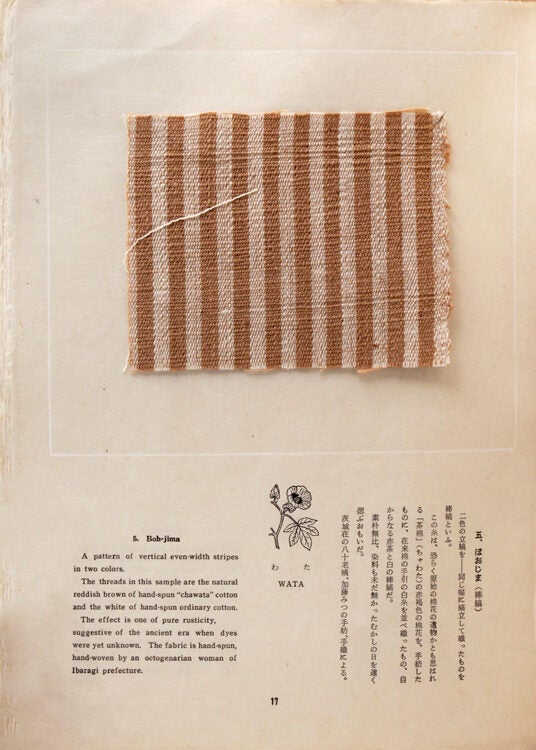 5. Boh-jima
A pattern of vertical even-width stripes
in two colors.
The threads in this sample are the natural
reddish brown of hand-spun “chawata” cotton
and the white of hand-spun ordinary cotton.
The effect is one of pure rusticity,
suggestive of the ancient era when dyes
were yet unknown. The fabric is hand-spun,
hand-woven by an octogenarian woman of
Ibaragi prefecture.
わた
WATA
五、ぼおじま（棒縞）
二色の立縞を──同じ幅に縞立して織ったものを
棒縞といふ。
この糸は、恐らく原始の棉花の遺物かとも思はれ
る「茶棉」（ちゃわた）の赤褐色の棉花を、手紡した
ものに、在来棉の手引の白糸を並べ織ったもの、自
からなる赤茶と白の棒縞だ。
素朴無比、染料も未だ無かったむかしの日を遠く
偲ぶおもいだ。
茨城在の八十老媼、加藤みつの手紡、手織による。
17